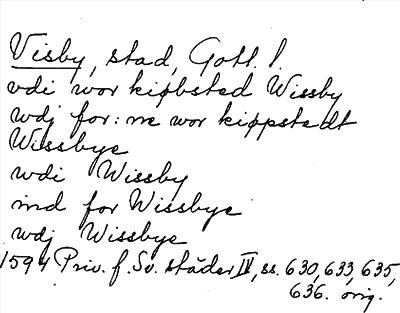 Visby, stad, Gotl. l.
vdi wor kiøbsted Wissby
wdj for:ne wor kiøpstedt
Wissbye
wdi Wissby
ind for Wissbye
wdj Wissbye
1594 Priv. f. Sv. städer IV, ss. 630, 633, 635,
636. orig.